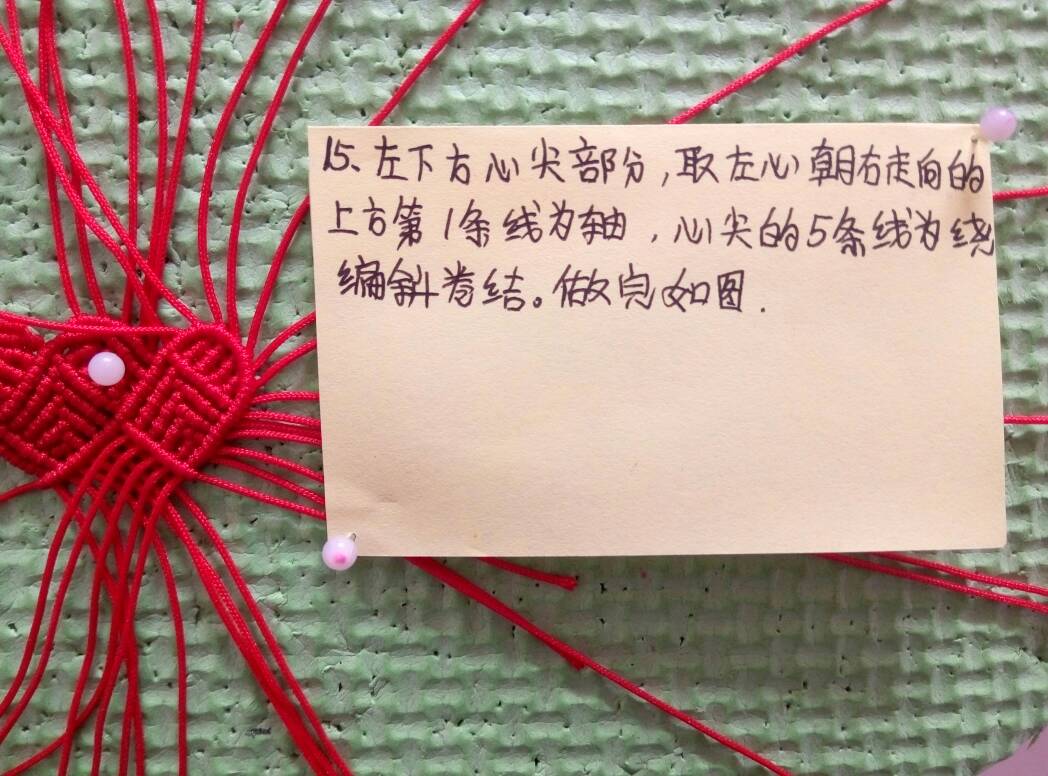 15、左下方心尖部分,取左心朝右走向的
上方第1条线为轴,心尖的5条线为绕
编斜卷结。做完如图.